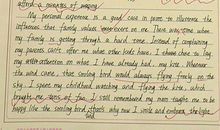 after a minutes of waiting
My personal experience is a good case in point to illustrate the
influences that family values have on me. There was time when
my family is getting through a hard time. Instead of complaining
my parents can't offer me what other kids have, I chose to lay
my attention on what I have already had, my kite. Whenever
the wind came, that smiling bird would always flying freely on the
sky. I spent my childhood watching and flying the kite, which
brought me tons of fun. I still remembered my mom taught me to be
happy like the smiling bird, that's why now I smile and embrace the light